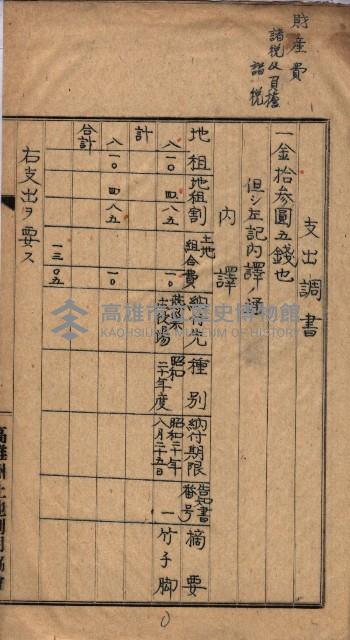 財産費
諸税及負擔
諸税
支出調書
一金拾参圓五銭也
但シ左記内譯ノ通
内譯
地租 地租割 土地組合費 納付先 種別 納付期限 告知書番号 摘要
八一〇 四八五 一〇 庄役場 昭和二十年度 昭和二十年八月二十五日 一 竹子脚
計 八一〇 四八五 一〇
合計 一三〇五
右支出ヲ要ス
高雄市立歷史博物館
KAOHSIUNG MUSEUM OF HISTORY